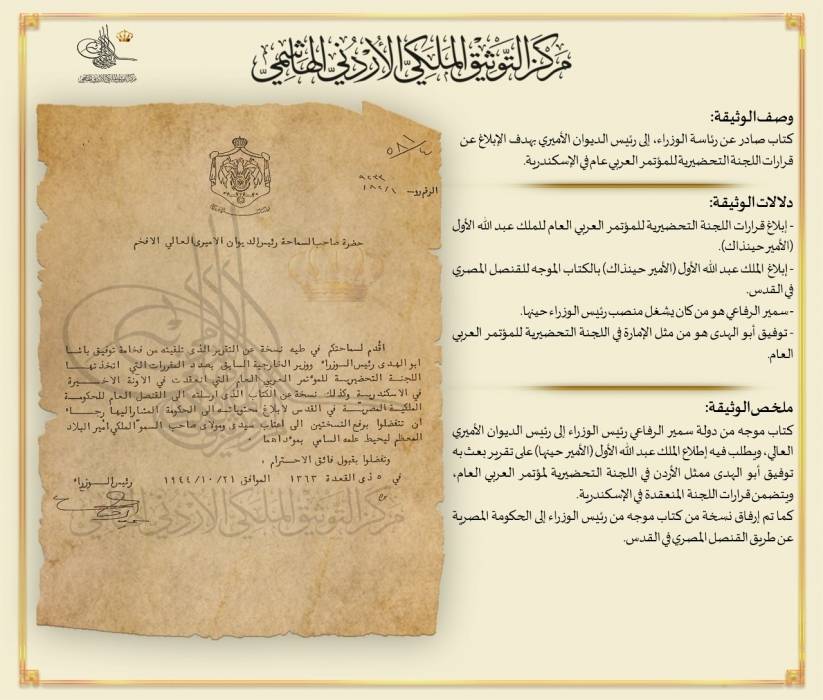 مركز التوثيق الملكي الأردني الهاشمي
وصف الوثيقة:
كتاب صادر عن رئاسة الوزراء، إلى رئيس الديوان الأميري بهدف الإبلاغ عن
قرارات اللجنة التحضيرية للمؤتمر العربي عام في الإسكندرية.
دلالات الوثيقة:
- إبلاغ قرارات اللجنة التحضيرية للمؤتمر العربي العام للملك عبد الله الأول
(الأمير حينذاك).
- إبلاغ الملك عبد الله الأول (الأمير حينذاك) بالكتاب الموجه للقنصل المصري
في القدس.
- سمير الرفاعي هو من كان يشغل منصب رئيس الوزراء حينها.
- توفيق أبو الهدى هو من مثل الإمارة في اللجنة التحضيرية للمؤتمر العربي
العام.
ملخص الوثيقة:
كتاب موجه من دولة سمير الرفاعي رئيس الوزراء إلى رئيس الديوان الأميري
العالي، ويطلب فيه إطلاع الملك عبد الله الأول (الأمير حينها) على تقرير بعث به
توفيق أبو الهدى ممثل الأردن في اللجنة التحضيرية لمؤتمر العربي العام،
ويتضمن قرارات اللجنة المنعقدة في الإسكندرية.
كما تم إرفاق نسخة من كتاب موجه من رئيس الوزراء إلى الحكومة المصرية
عن طريق القنصل المصري في القدس.
حضرة صاحب السماحة رئيس الديوان الاميري العالي الافخم
اقدم لسماحتكم في طيه نسخة عن التقرير الذى تلقيته من فخامة توفيق باشا
ابو الهدى رئيس الوزراء ووزير الخارجية السابق بصدد المقررات التي اتخذتها
اللجنة التحضيرية للمؤتمر العربي العام التي انعقدت في الآونة الاخيرة
في الاسكندرية وكذلك نسخة عن الكتاب الذى ارسلته الى القنصل العام للحكومة
الملكية المصرية في القدس لابلاغ محتوياته الى الحكومة المشار اليها رجاء
ان تتفضلوا برفع النسختين الى اعتاب سيدى ومولاى صاحب السمو الملكي امير البلاد
المعظم ليحيط علمه السامي بمؤداهما .
وتفضلوا بقبول فائق الاحترام ،
في ٥ ذى القعدة ١٣٦٣ الموافق ١٩٤٤/١٠/٢١ رئيس الوزراء
مركز التوثيق الملكي الأردني الهاشمي